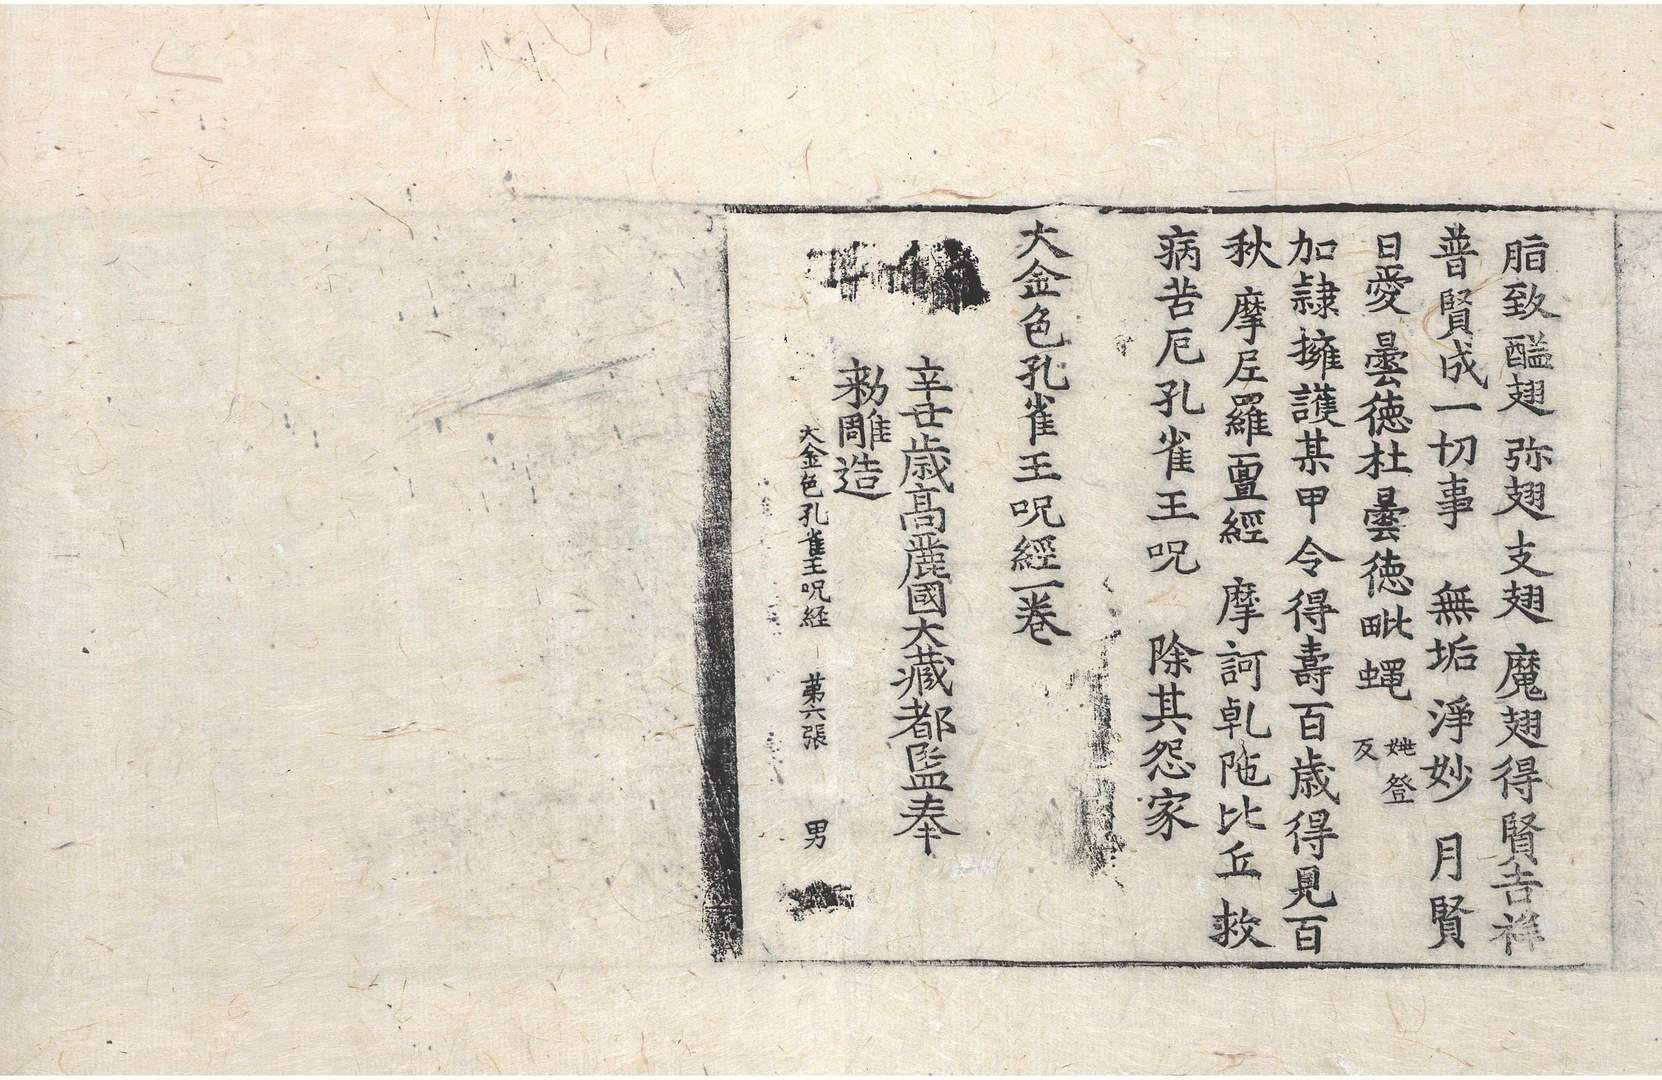 脂致醯翅 弥翅 支翅 魔翅得賢吉祥
普賢成一切事 無垢 淨妙 月賢
日愛 曇徳杜曇徳毗 蠅 姚登反
加隷擁護某甲令得壽百歳得見百
秋 摩𡰱羅亶經 摩訶乹陁比丘 救
病苦厄孔雀王呪 除其怨家
大金色孔雀王呪經一卷
辛丑歳高麗國大藏都監奉
勑雕造
大金色孔雀王呪経 苐六張 男